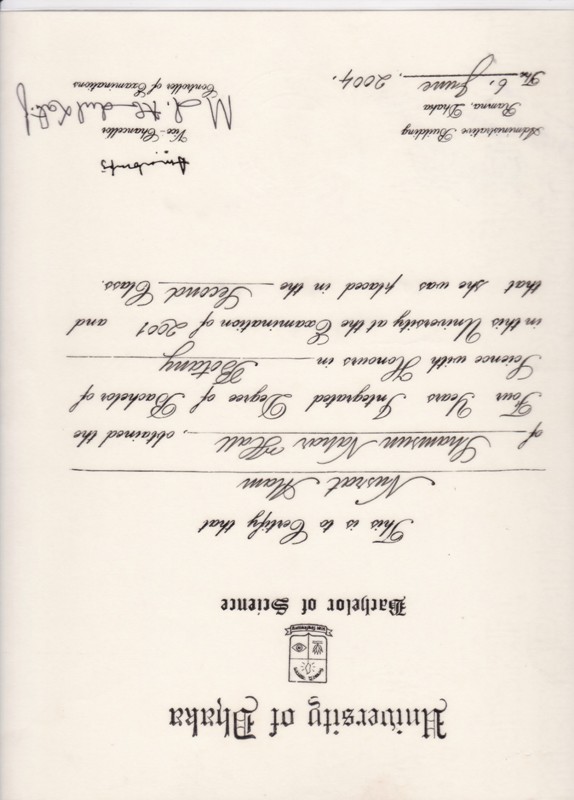 University of Dhaka
Bachelor of Science
This is to Certify that
Nusrat Alam
of Shamsun Nahar Hall, obtained the
Four Years Integrated Degree of Bachelor of
Science with Honours in Botany
in this University at the Examination of 2001 and
that she was placed in the Second Class.
Administrative Building
Ramna, Dhaka
The 6. June, 2004.
Vice-Chancellor
Md. Abdul Latif
Controller of Examinations